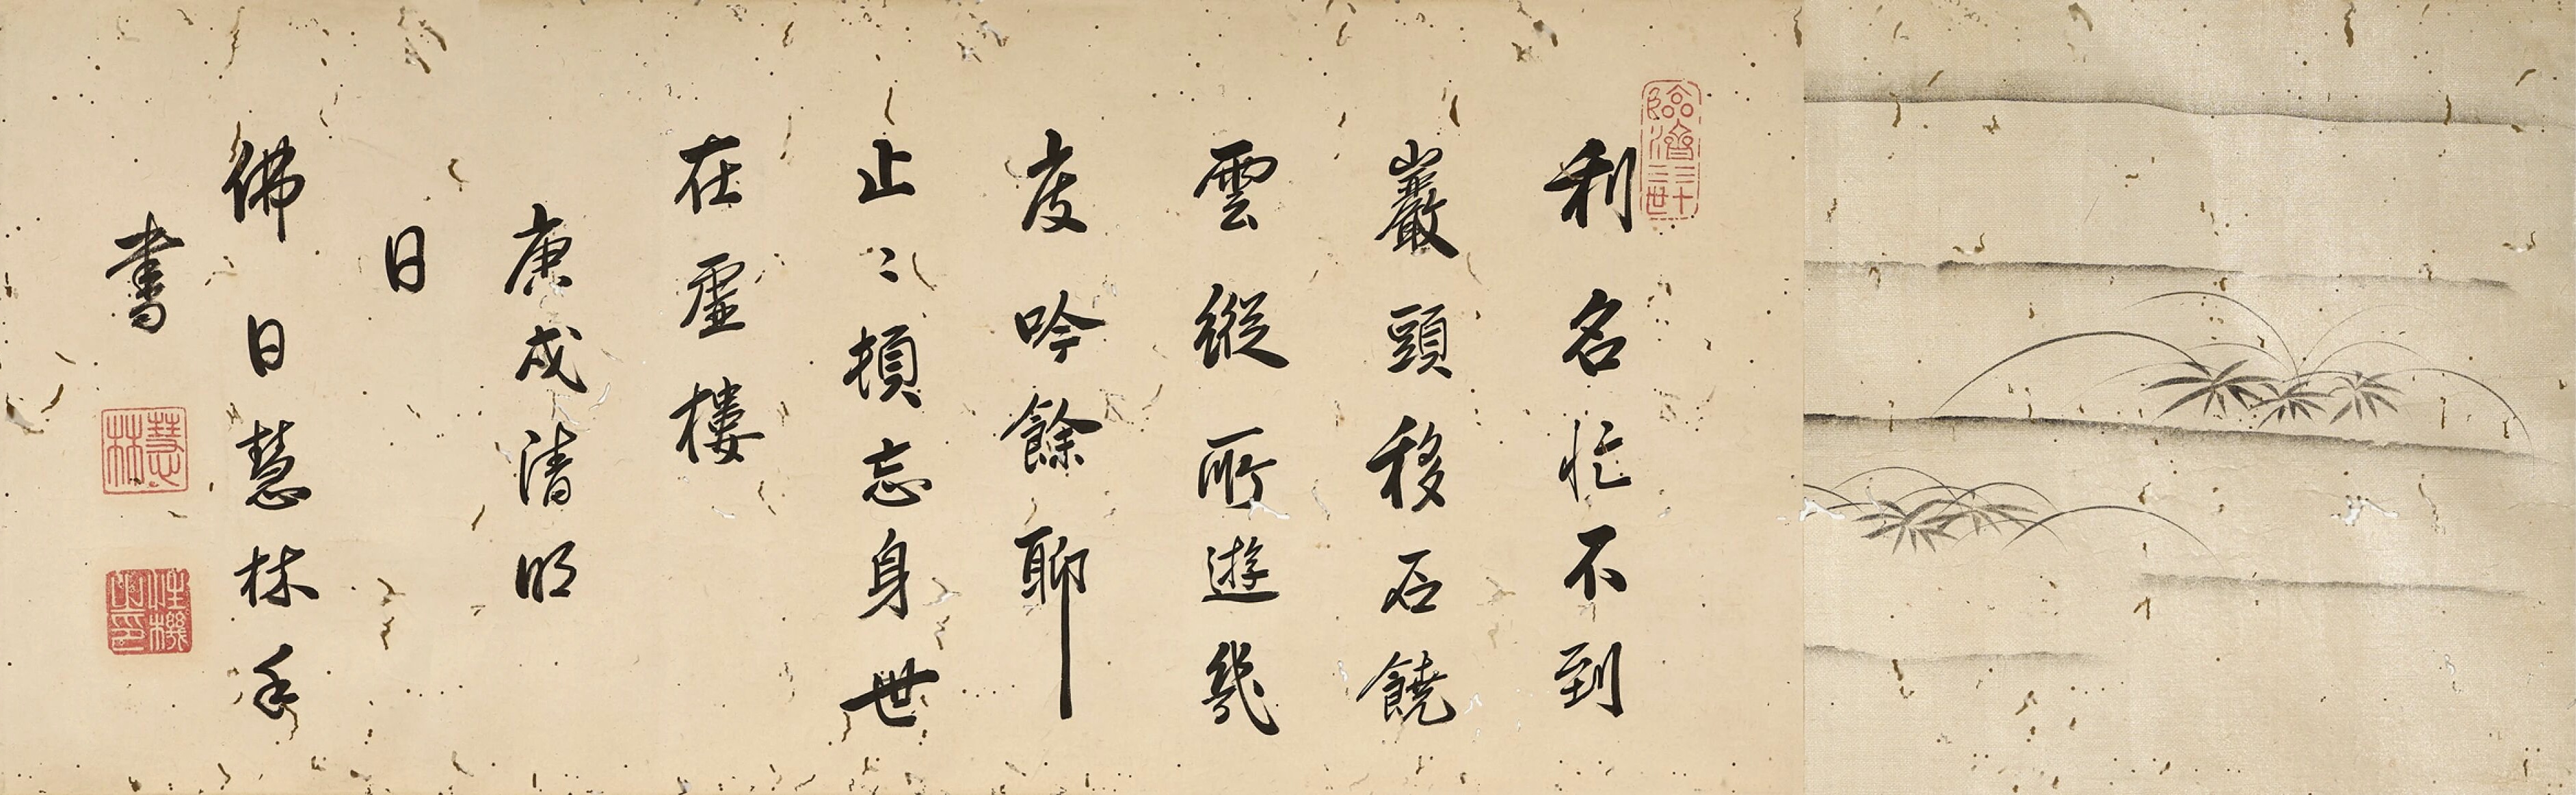 臨濟三十三世
利名忙不到
巖頭移石饒
雲縱所遊幾
度吟餘聊
止〻頓忘身世
在虛樓
庚戌清明
日
佛日慧林手
書
慧林
性機之印